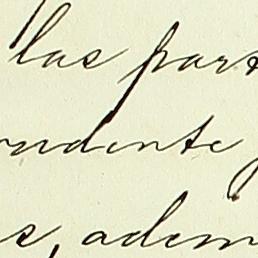 las part
ndente
s, adem